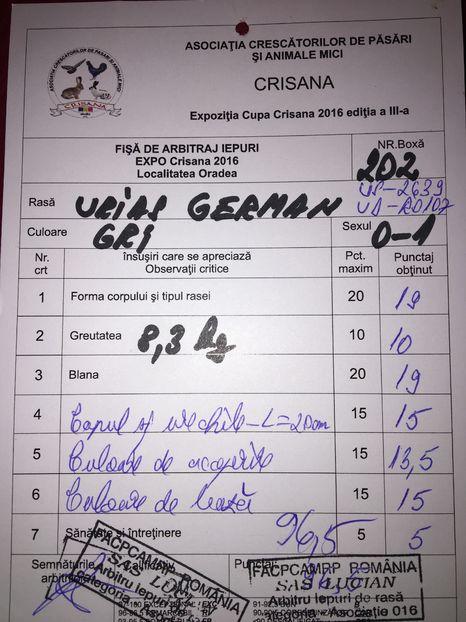 ASOCIAŢIA CRESCĂTORILOR DE PĂSĂRI
ŞI ANIMALE MICI
ASOCIAŢIA CRESCĂTORILOR DE PĂSĂRI ŞI ANIMALE MICI
CRISANA
CRISANA
Expoziţia Cupa Crisana 2016 ediţia a III-a
FIŞĂ DE ARBITRAJ IEPURI
EXPO Crisana 2016
Localitatea Oradea
NR.Boxă
202
US-2639
UD-R0107
Rasă URIAS GERMAN
Culoare GRI
Sexul 0-1
Nr. crt
însuşiri care se apreciază
Observaţii critice
Pct. maxim
Punctaj obţinut
1 Forma corpului şi tipul rasei 20 19
2 Greutatea 8,3 kg 10 10
3 Blana 20 19
4 Capul si urechile - L=20cm 15 15
5 Culoare de acoperire 15 13,5
6 Culoare de bază 15 15
7 Sănătate şi întreţinere 96,5 5 5
Semnăturile
Calificativ
Punctaj
FACPCAMRP ROMÂNIA
SAS
Arbitru iepuri
FACPCAMRP ROMÂNIA
SAS LUCIAN
Arbitru Iepuri de rasă
Asociaţie 016